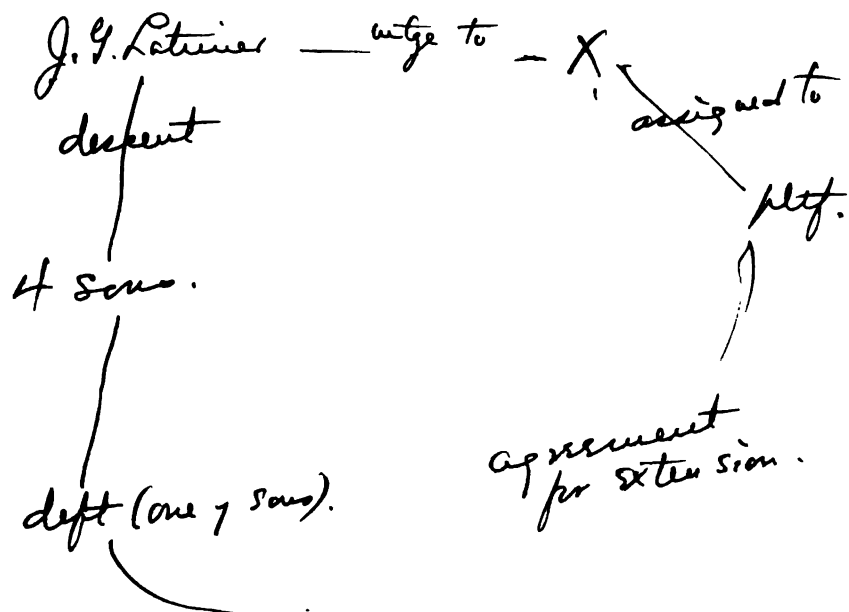 J. G. Latimer — mtge to — X
descent
assigned to
pltf.
4 sons.
agreement
for extension.
deft (one of sons).